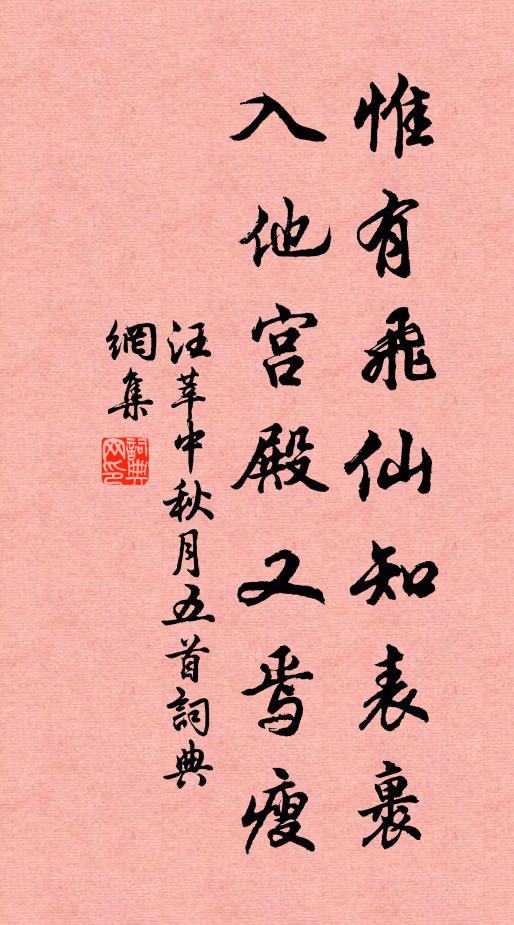 惟有飛仙知表裏
入他宮殿又焉廋
汪莘中秋月五首詞典
網集
詞典
网印